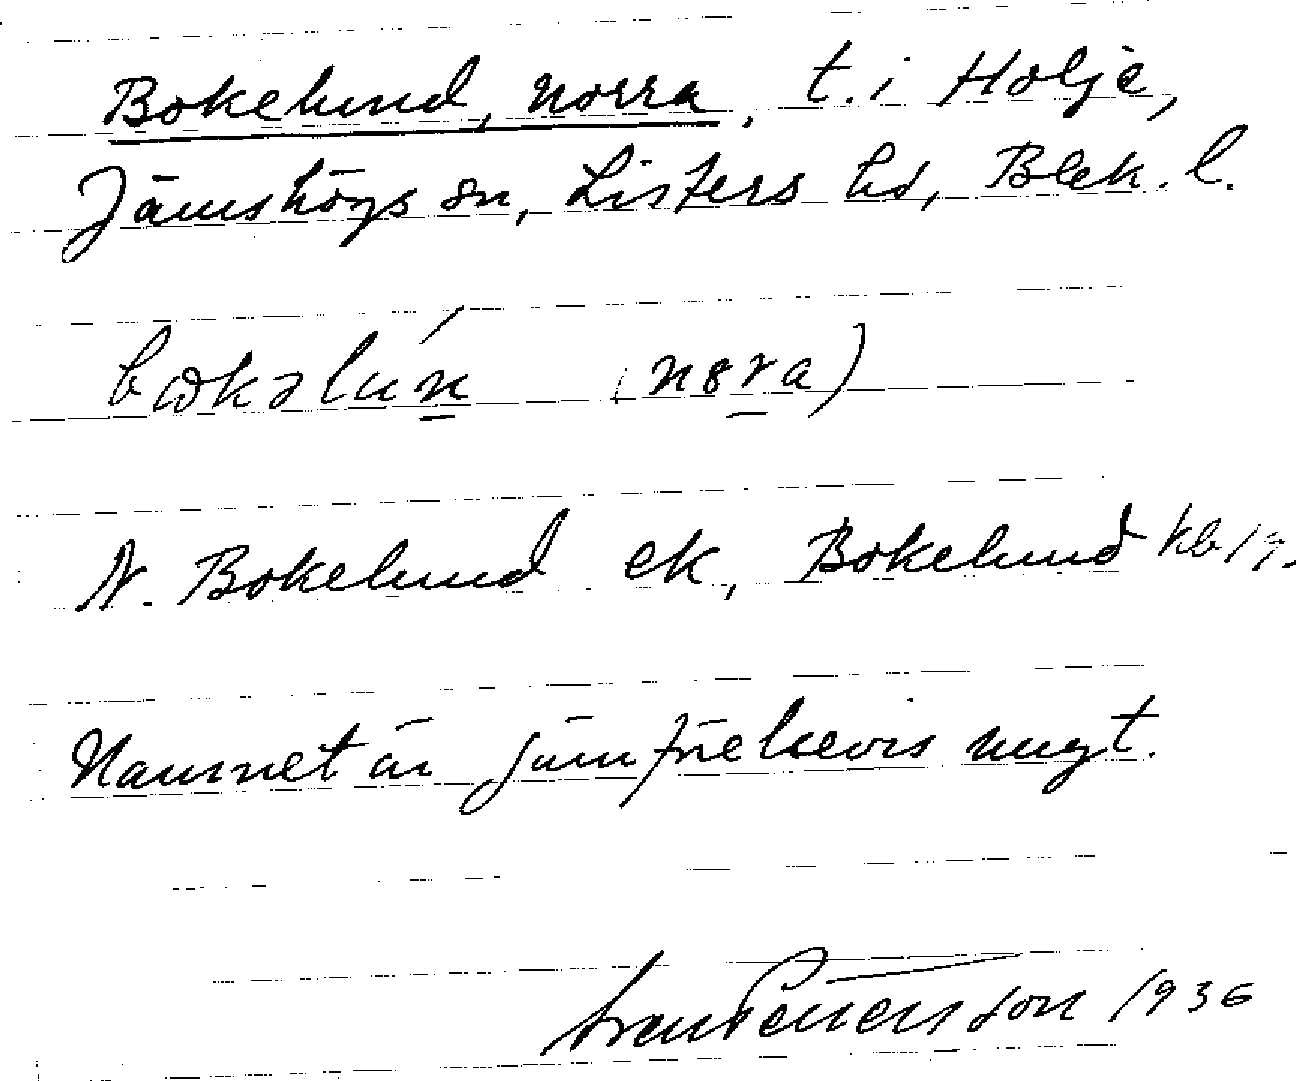 Bokelund, norra, t. i Holje,
Jämshögs sn, Listers hd, Blek. l.
bωkəlún (nɵra)
N. Bokelund ek, Bokelund kb
Namnet är jämförelsevis nugt.
Pettersson 1936